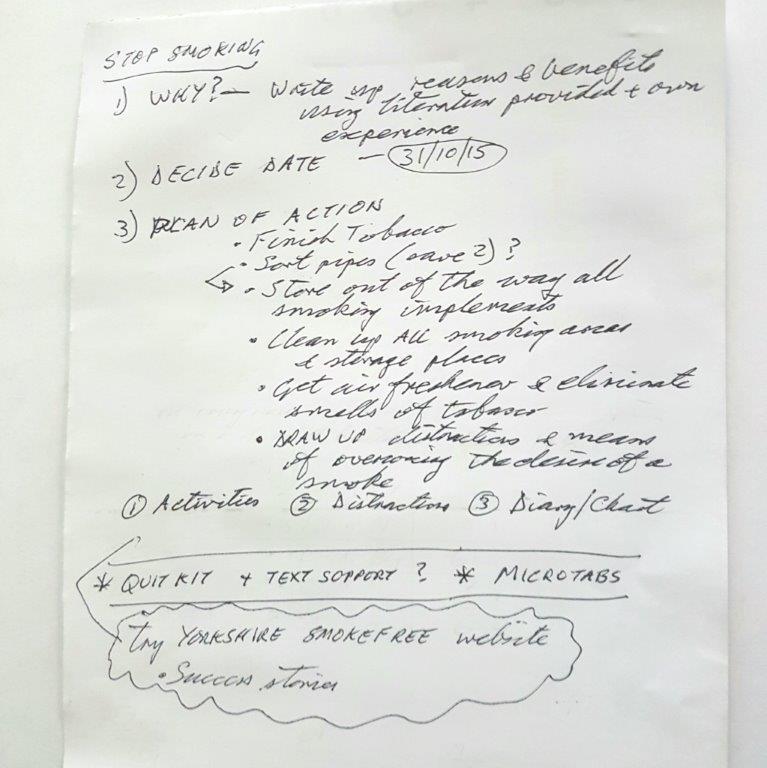 STOP SMOKING
1) WHY? – Write up reasons & benefits
using literature provided + own
experience
2) DECIDE DATE – 31/10/15
3) PLAN OF ACTION
• Finish Tobacco
• Sort pipes (save 2)?
• Store out of the way all
smoking implements
• Clean up ALL smoking areas
& storage places
• Get air freshener & eliminate
smells of tobacco
• DRAW UP distractions & means
of overcoming the desire of a
smoke
① Activities ② Distractions ③ Diary/Chart
* QUIT KIT + TEXT SUPPORT? * MICROTABS
try YORKSHIRE SMOKEFREE website
• Success stories